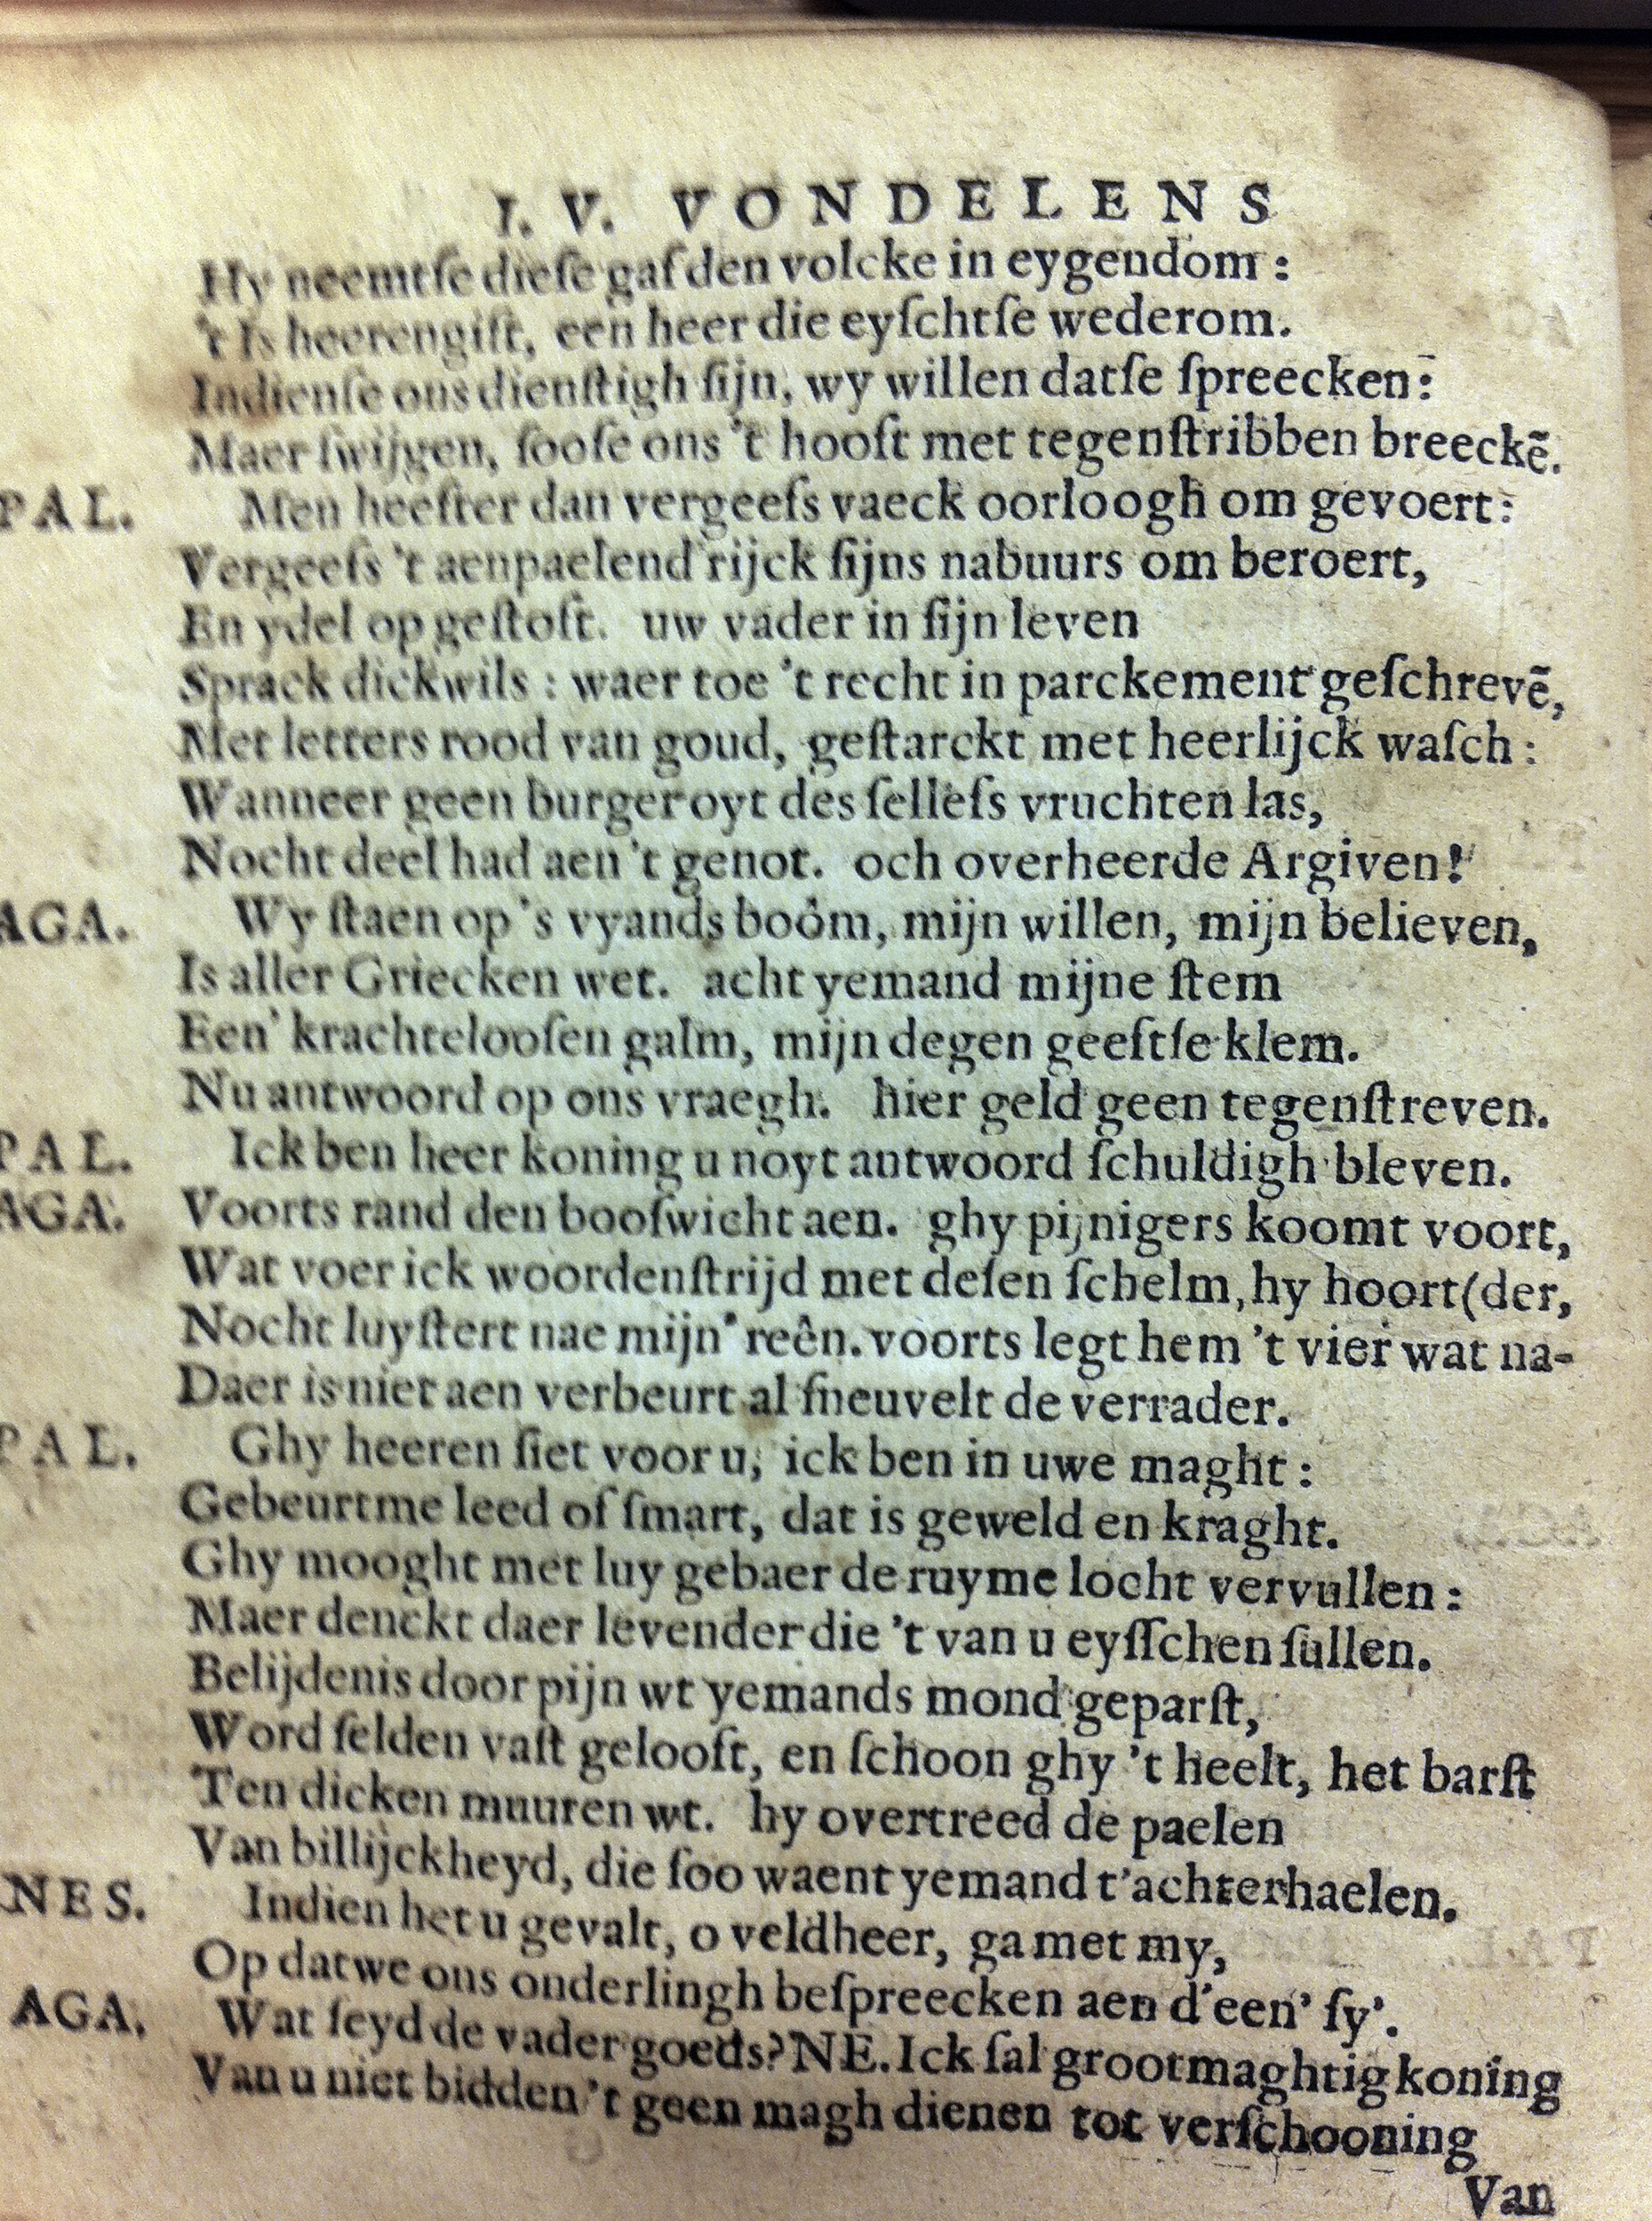 I. V. VONDELENS
Hy neemtſe dieſe gaf den volcke in eygendom:
't Is heerengift, een heer die eyſchtſe wederom.
Indienſe ons dienſtigh ſijn, wy willen datſe ſpreecken:
Maer ſwijgen, ſooſe ons 't hooft met tegenſtribben breeckē.
PAL. Men heefter dan vergeefs vaeck oorloogh om gevoert:
Vergeefs 't aenpaelend rijck ſijns nabuurs om beroert,
En ydel op geſtoft. uw vader in ſijn leven
Sprack dickwils: waer toe 't recht in parckement geſchrevē,
Met letters rood van goud, geſtarckt met heerlijck waſch:
Wanneer geen burger oyt des ſelfefs vruchten las,
Nocht deel had aen 't genot. och overheerde Argiven!
AGA. Wy ſtaen op 's vyands boôm, mijn willen, mijn believen,
Is aller Griecken wet. acht yemand mijne ſtem
Een' krachteloofen galm, mijn degen geeftſe klem.
Nu antwoord op ons vraegh. hier geld geen tegenſtreven.
PAL. Ick ben heer koning u noyt antwoord ſchuldigh bleven.
AGA. Voorts rand den booſwicht aen. ghy pijnigers koomt voort,
Wat voer ick woordenſtrijd met deſen ſchelm, hy hoort (der,
Nocht luyſtert nae mijn' reên. voorts legt hem 't vier wat na-
Daer is niet aen verbeurt al ſneuvelt de verrader.
PAL. Ghy heeren ſiet voor u, ick ben in uwe maght:
Gebeurtme leed of ſmart, dat is geweld en kraght.
Ghy mooght met luy gebaer de ruyme locht vervullen:
Maer denckt daer levender die 't van u eyſſchen ſullen.
Belijdenis door pijn wt yemands mond geparſt,
Word ſelden vaſt gelooft, en ſchoon ghy 't heelt, het barſt
Ten dicken muuren wt. hy overtreed de paelen
Van billijckheyd, die ſoo waent yemand t'achterhaelen.
NES. Indien het u gevalt, o veldheer, ga met my,
Op datwe ons onderlingh beſpreecken aen d'een' ſy'.
AGA. Wat ſeyd de vader goeds? NE. Ick ſal grootmaghtig koning
Van u niet bidden 't geen magh dienen tot verſchooning
Van